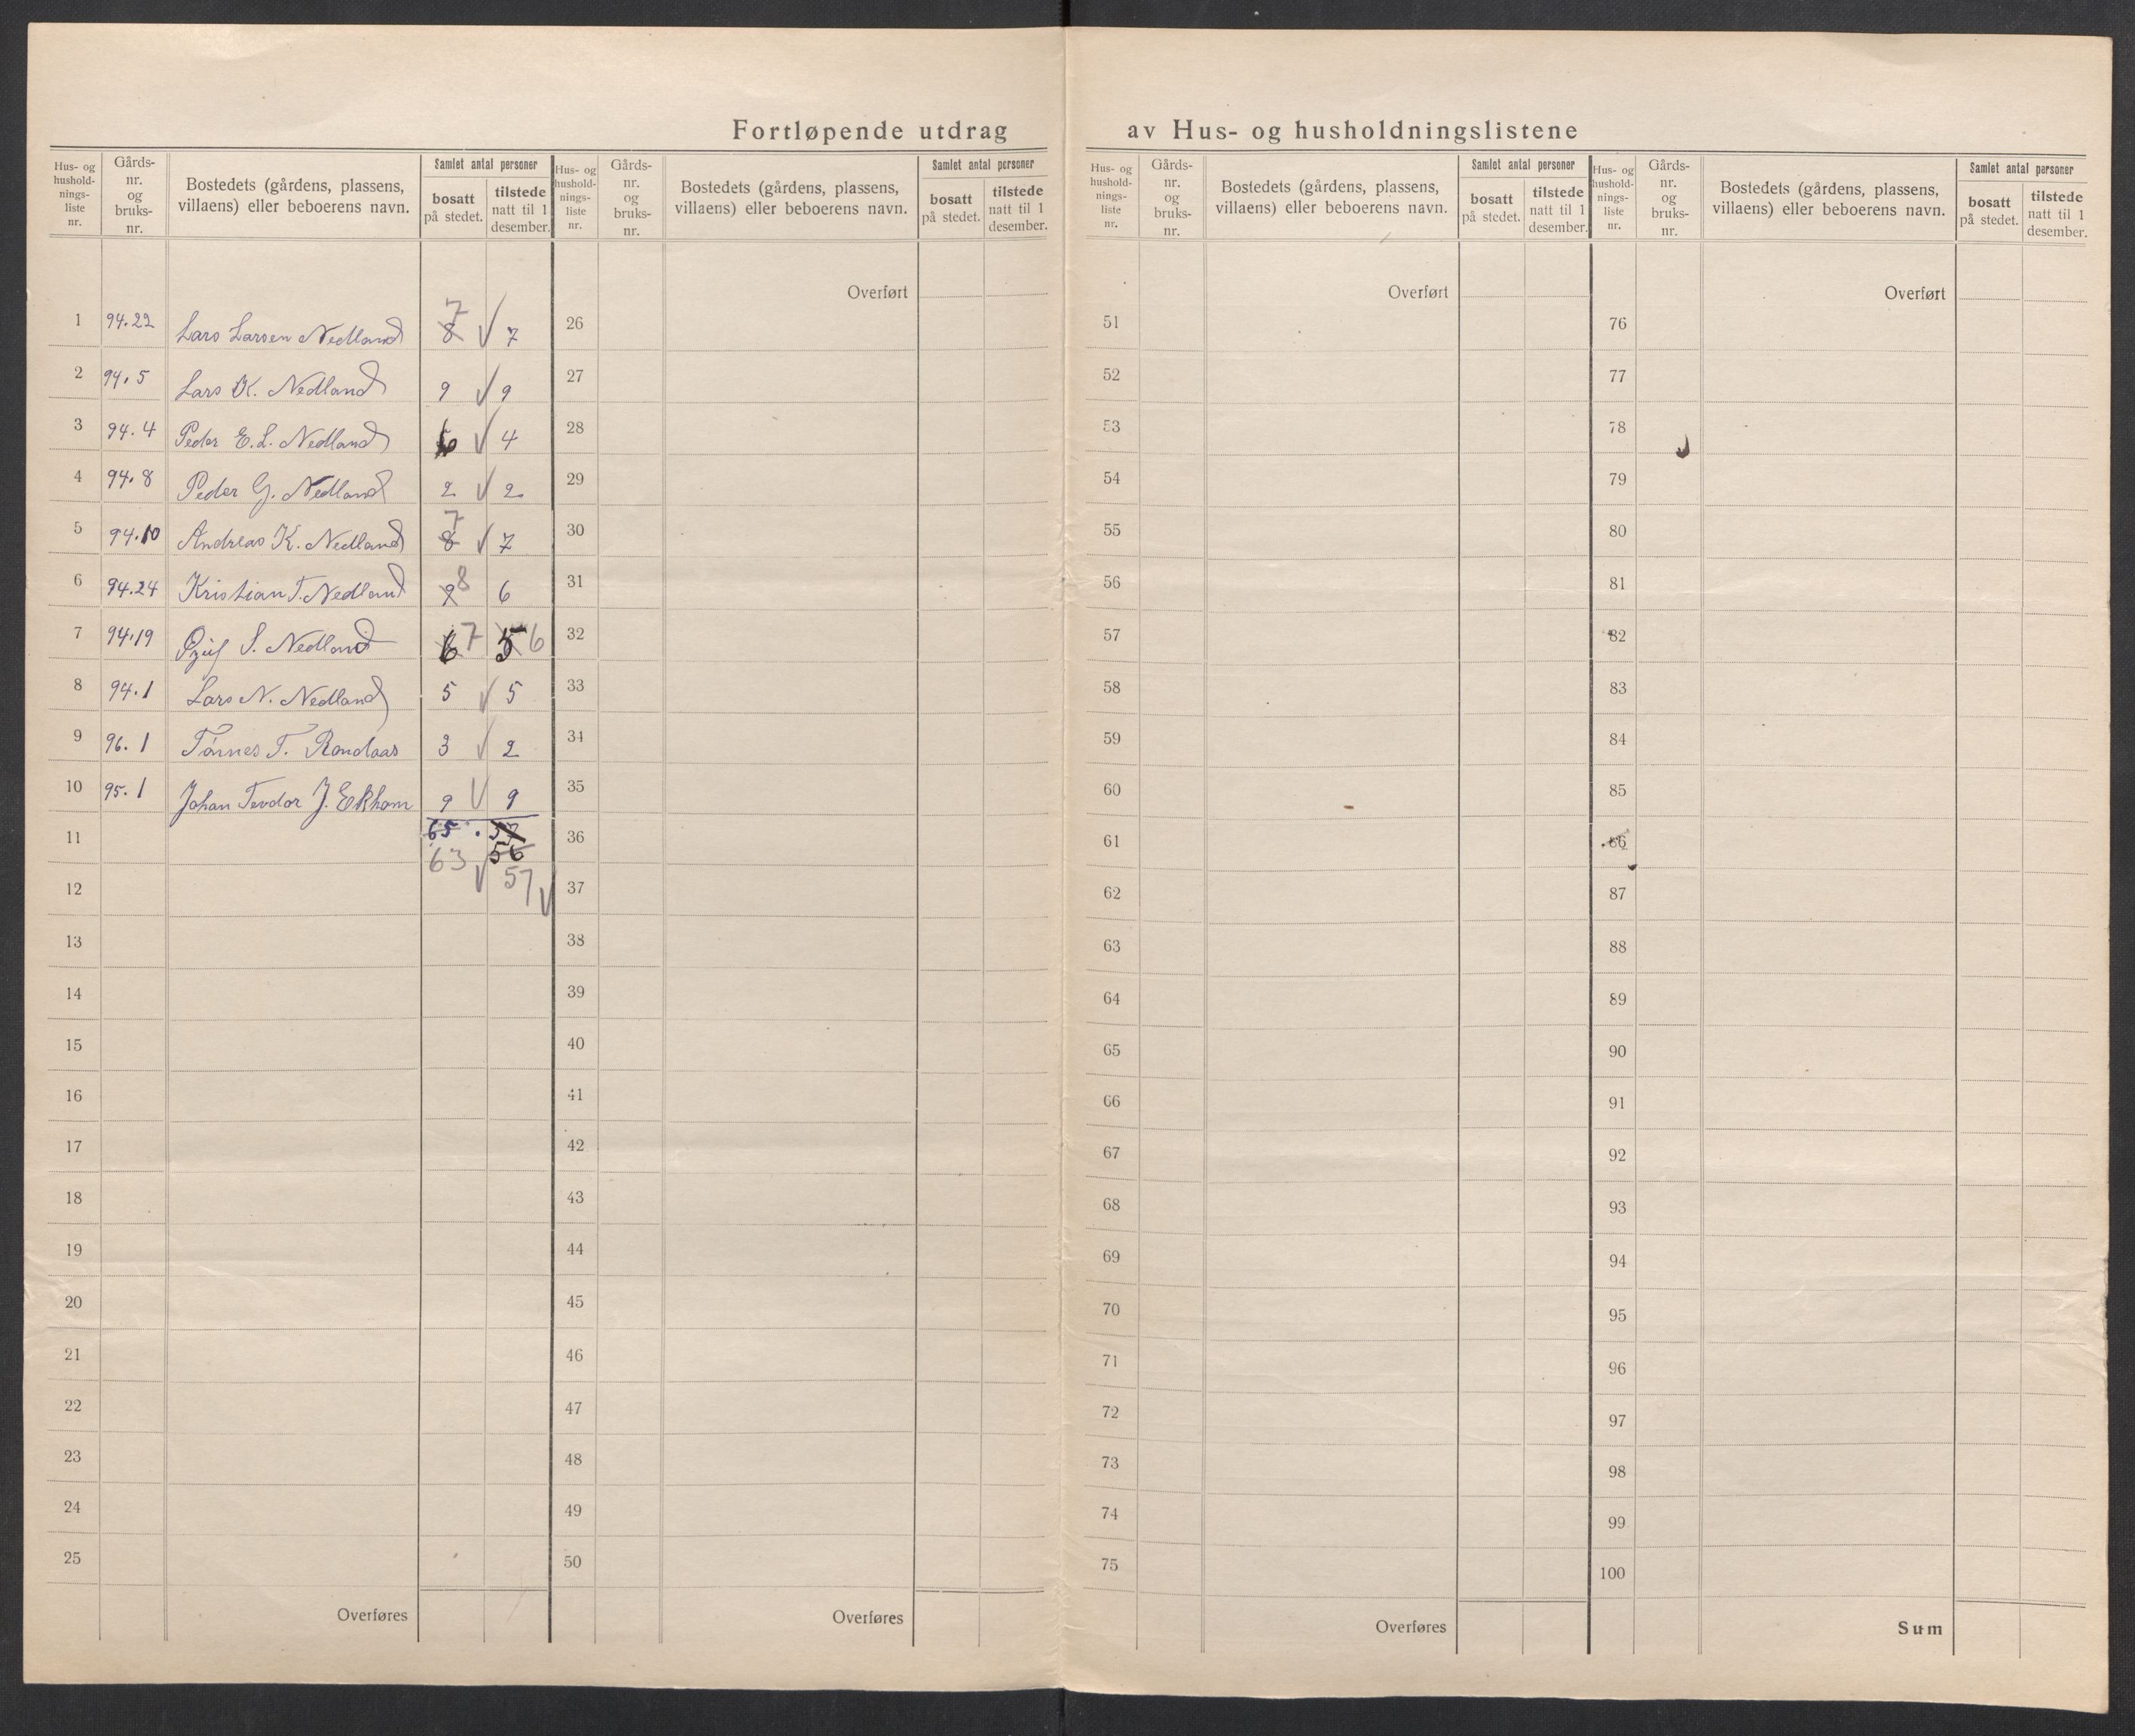 Fortløpende utdrag av Hus- og husholdningslistene
Hus- og hushold-nings-liste nr. Gårds-nr. og bruks-nr. Bostedets (gårdens, plassens, villaens) eller beboerens navn. Samlet antal personer bosatt på stedet. tilstede natt til 1 desember.
Hus- og hushold-nings-liste nr. Gårds-nr. og bruks-nr. Bostedets (gårdens, plassens, villaens) eller beboerens navn. Samlet antal personer bosatt på stedet. tilstede natt til 1 desember.
Hus- og hushold-nings-liste nr. Gårds-nr. og bruks-nr. Bostedets (gårdens, plassens, villaens) eller beboerens navn. Samlet antal personer bosatt på stedet. tilstede natt til 1 desember.
Hus- og hushold-nings-liste nr. Gårds-nr. og bruks-nr. Bostedets (gårdens, plassens, villaens) eller beboerens navn. Samlet antal personer bosatt på stedet. tilstede natt til 1 desember.
Overført Overført Overført
1 94.22 Lars Larsen Nedland 8 7 √ 7 26 51 76
2 94.5 Lars K. Nedland 9 √ 9 27 52 77
3 94.4 Peder E. L. Nedland 6 √ 4 28 53 78
4 94.8 Peder G. Nedland 2 √ 2 29 54 79
5 94.10 Andreas K. Nedland 8 7 √ 7 30 55 80
6 94.24 Kristian T. Nedland 9 8 6 31 56 81
7 94.19 S. Nedland 6 7 5 6 32 57 82
8 94.1 Lars N. Nedland 5 √ 5 33 58 83
9 96.1 Tønnes T. Rondaas 3 √ 2 34 59 84
10 95.1 Johan Teodor J. Ekhom 9 √ 9 35 60 85
11 65 57 36 61 86
63 √ 56
12 57 √ 37 62 87
13 38 63 88
14 39 64 89
15 40 65 90
16 41 66 91
17 42 67 92
18 43 68 93
19 44 69 94
20 45 70 95
21 46 71 96
22 47 72 97
23 48 73 98
24 49 74 99
25 50 75 100
Overføres Overføres Overføres Sum